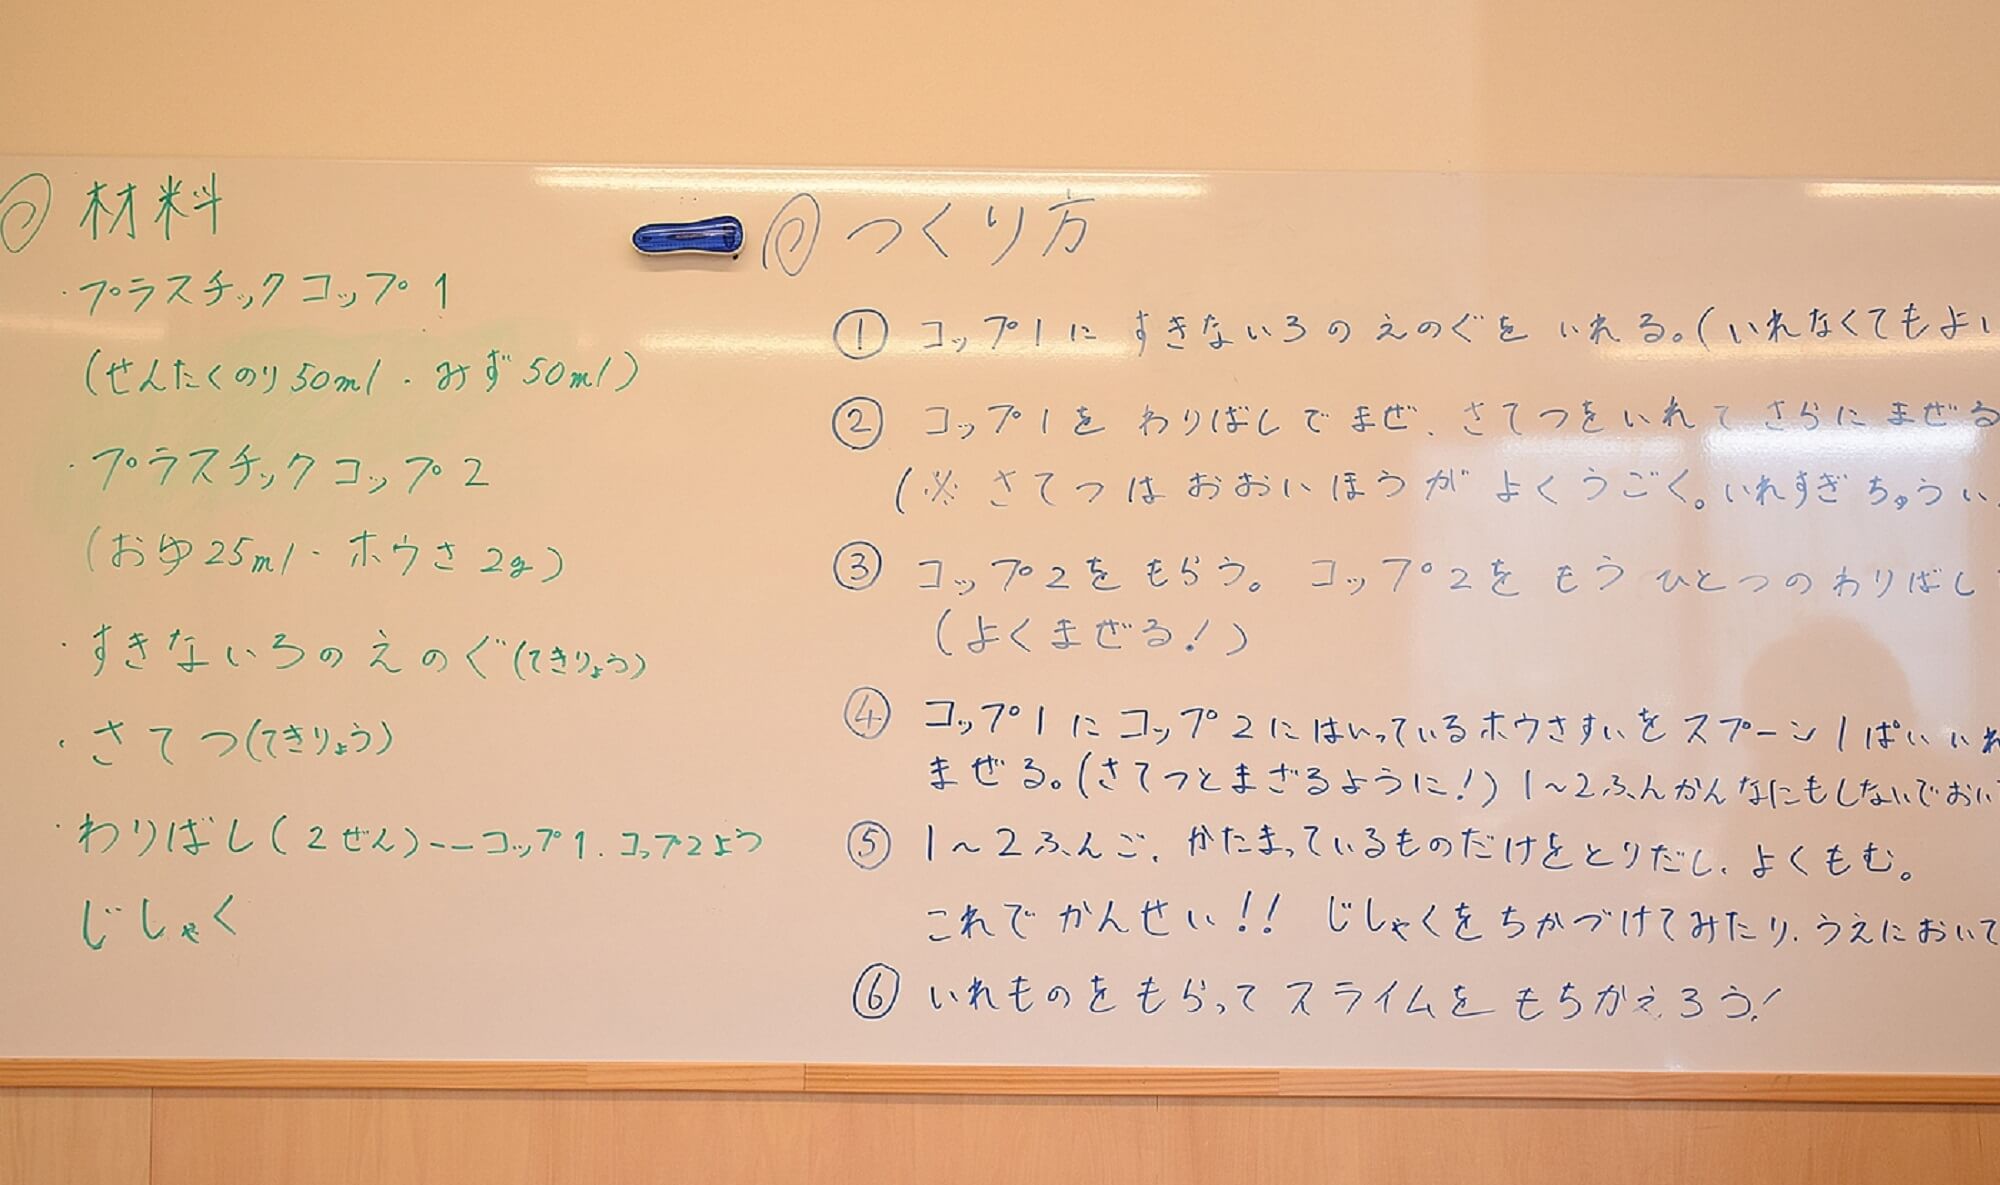 ◎ 材料
・プラスチックコップ1
(せんたくのり50ml・みず50ml)
・プラスチックコップ2
(おゆ25ml・ホウさ2g)
・すきないろのえのぐ(てきりょう)
・さてつ(てきりょう)
・わりばし(2ぜん)ーーコップ1、コップ2よう
じしゃく
◎ つくり方
① コップ1に すきないろの えのぐを いれる。(いれなくてもよい
② コップ1を わりばしで まぜ、さてつをいれて さらに まぜる
(※ さてつは おおいほうが よくうごく。いれすぎ ちゅうい、
③ コップ2を もらう。コップ2を もう ひとつの わりばし
(よくまぜる!)
④ コップ1に コップ2に はいっているホウさすいを スプーン1ぱい いれ
まぜる。(さてつとまざるように!)1〜2ふんかんなにもしないでおい
⑤ 1〜2ふんご、かたまっているものだけをとりだし、よくもむ。
これで かんせい!! じしゃくをちかづけてみたり、うえにおいて
⑥ いれものをもらって スライムを もちかえろう!